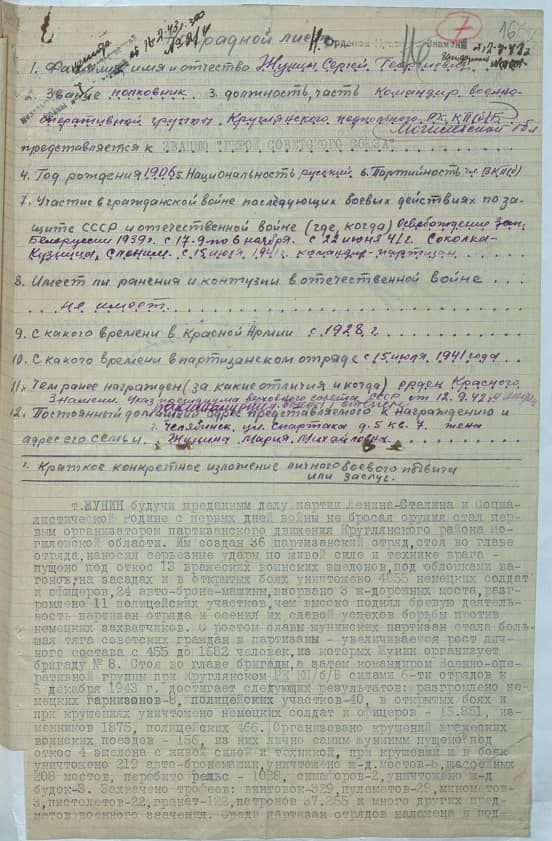 7 16
Наградной лист Орденом Знамени
1. Фамилия имя и отчество Жунин Сергей Георгиевич
2. Звание полковник 3. должность, часть командир военно-
оперативной группы Круглянского подпольного РК КП(б)Б
Могилевской обл
представляется к ЗВАНИЮ "ГЕРОЙ СОВЕТСКОГО СОЮЗА"
4. Год рождения 1906 5. Национальность русский 6. Партийность ВКП(б)
7. Участие в гражданской войне последующих боевых действиях по за-
щите СССР и отечественной войне (где, когда) Освобождение Зап.
Белоруссии 1939 г. с 17.9 по 6 ноября. с 22 июня 41 г. Соколка-
Кузница, Слоним. с 15 июля 1941 г. командир-партизан
8. Имеет ли ранения и контузии в отечественной войне
не имеет
9. С какого времени в Красной Армии с 1928 г.
10. С какого времени в партизанском отряде с 15 июля 1941 года
11. Чем ранее награжден (за какие отличия и когда) орден Красного
Знамени. Указ президиума верховного совета СССР от 12.9.42
12. Постоянный домашний адрес представляемого к награждению и
г. Челябинск, ул. Спартака д. 5 кв. 7. жена
адрес его семьи. Жунина Мария Михайловна
1. Краткое конкретное изложение личного боевого подвига
или заслуг.
т.ЖУНИН будучи преданным делу партии Ленина-Сталина и Социа-
листической Родине с первых дней войны не бросая оружия стал пер-
вым организатором партизанского движения Круглянского района Мо-
гилевской области. Им создан 36 партизанский отряд, стоя во главе
отряда, наносил серьезные удары по живой силе и технике врага -
пущено под откос 13 вражеских воинских эшелонов, под обломками ва-
гонов, на засадах и в открытых боях уничтожено 4055 немецких солдат
и офицеров, 24 авто-броне-машины, взорвано 3 ж-дорожных моста, раз-
громлено 11 полицейских участков, чем высоко поднял боевую деятель-
ность партизан отряда и осенил их славой успехов борьбы против
немецких захватчиков. С ростом славы жунинских партизан стала боль-
шая тяга советских граждан в партизаны - увеличивается рост лич-
ного состава с 455 до 1682 человек, из которых Жунин организует
бригаду № 8. Стоя во главе бригады, а затем командиром Военно-опе-
ративной группы при Круглянском РК КП/б/Б силами 6-ти отрядов к
5 декабря 1943 г. достигает следующих результатов: разгромлено не-
мецких гарнизонов-8, полицейских участков-40, в открытых боях и
при крушениях уничтожено немецких солдат и офицеров - 15.851, из-
менников 1875, полицейских 466. Организовано крушений вражеских
воинских поездов - 156, из них лично самим Жуниным пущено под
откос 4 эшелона с живой силой и техникой, при крушении и в боях
уничтожено 219 авто-бронемашин, уничтожено ж-д. мостов-6, шассейных
208 мостов, перебито рельс - 1028, симафоров-2, уничтожено ж-д
будок-3. Захвачено трофеев: винтовок-329, пулеметов-29, минометов-
3, пистолетов-22, гранат-122, патронов 37.265 и много других пред-
метов военного значения. Среди партизан отрядов наложена и под-